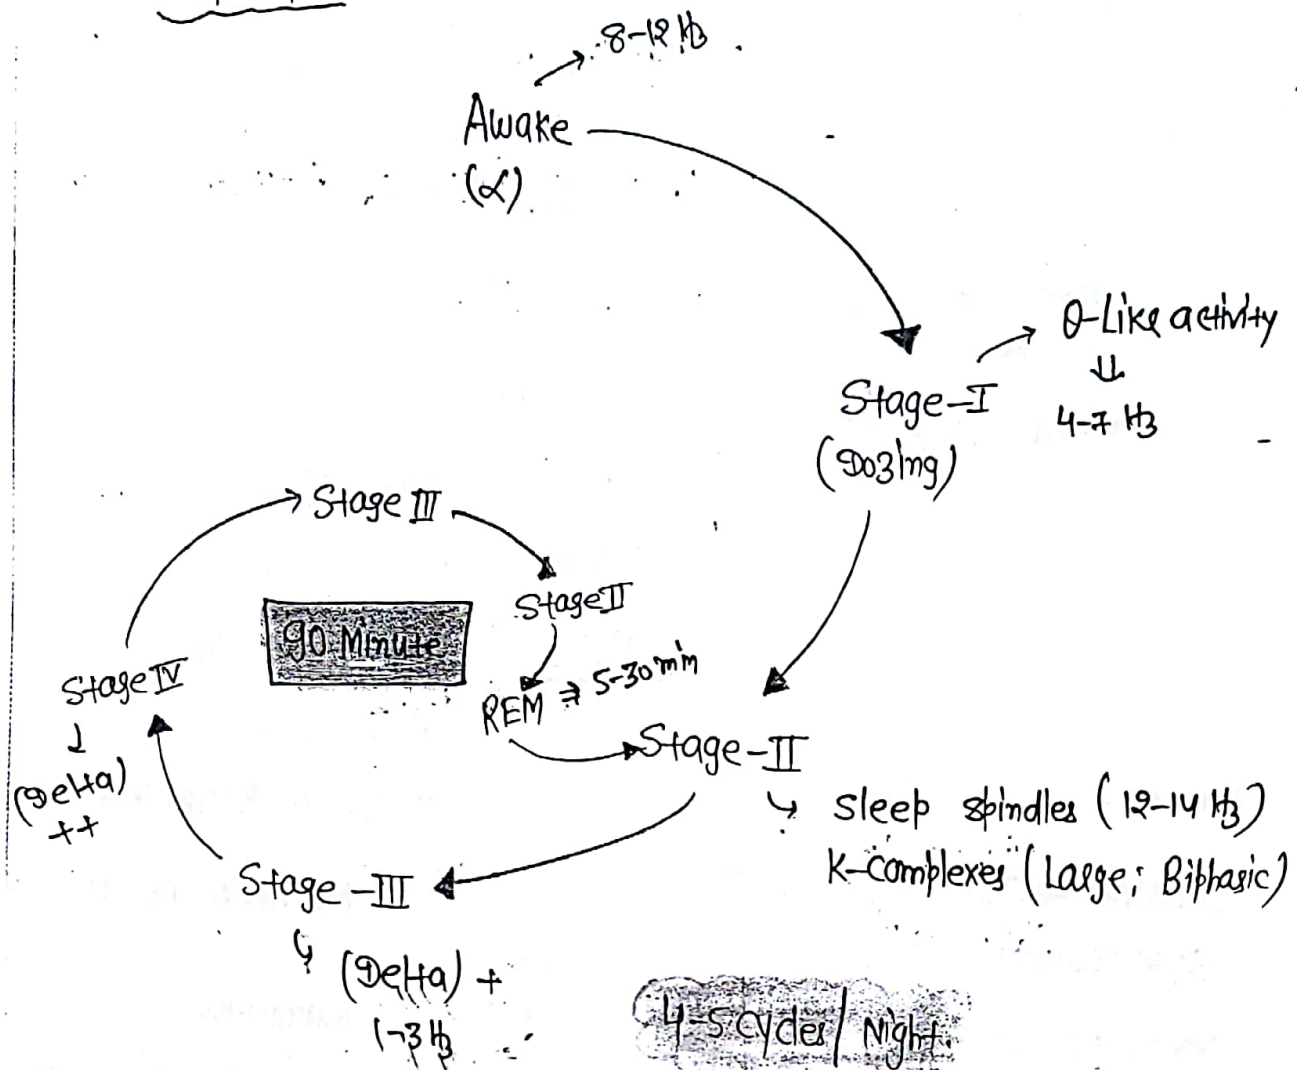 8-12 Hz
Awake
(α)
θ-Like activity
⇓
4-7 Hz
Stage-I
(Dozing)
Stage III
Stage II
90 Minute
REM ⇒ 5-30 min
Stage IV
(Delta)
++
Stage-II
Sleep spindles (12-14 Hz)
K-complexes (Large; Biphasic)
Stage-III
(Delta) +
1-3 Hz
4-5 cycles/Night.